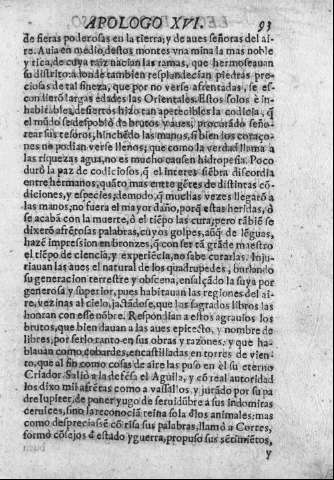 APOLOGO XVI. 93
de fieras poderosas en la tierra; y de aues señoras del ai-
re. Auia en medio, destos montes vna mina la mas noble
y rica, de cuya raiz nacian las ramas, que hermoseauan
su distrito: a donde tambien resplandecian piedras pre-
ciosas de tal fineza, que por no verse afrentadas, se es-
condierō largas edades las Orientales. Estos solos è in-
habitables, desiertos hizo tan apetecibles la codicia, q̃
el mūdo se despobló de brutos y aues, procurādo seño-
rear sus tesoros, hinchēdo las manos, si bien los coraço-
nes no podian verse llenos; que como la verdad llama a
las riquezas agua, no es mucho causen hidropesia. Poco
duró la paz de codiciosos, q̃ el interes siēbra discordia
entre hermanos, quāto mas entre gētes de distintas cō-
diciones, y especies; demodo, q̃ muchas vezes llegarō a
las manos, no fuera el mayor daño, porq̃ estas heridas, ò
se acabā con la muerte, ò el tiēpo las cura; pero tābiē se
dixerō afrētosas palabras, cuyos golpes, aūq̃ de lēguas,
hazē impression en bronzes, q̃ con ser tā grāde maestro
el tiēpo de ciencia, y experiēcia, no sabe curarlas. Inju-
riauan las aues el natural de los quadrupedes, burlando
su generacion terrestre y obscena, ensalçādo la suya por
generosa y superior, pues habitauan las regiones del ai-
re, vezinas al cielo, jactādose, que los sagrados libros las
honran con esse nōbre. Respondian a estos agrauios los
brutos, que bien dauan a las aues epicteto, y nombre de
libres, por serlo tanto en sus obras y razones, y que ha-
blauan como cobardes, encastilladas en torres de vien-
to, que al fin como cosas de aire las puso en èl su eterno
Criador. Salió a la defēsa el Aguila, y cō real autoridad
los dixo mil afrētas como a vassallos, y jurādo por su pa
dre Iupiter, de poner yugo de seruidūbre a sus indomitas
ceruices, sino la reconociā reina sola d̃ los animales; mas
como despreciassē cō risa sus palabras, llamó a Cortes,
formó cōsejos d̃ estado y guerra, propuso sus sētimiētos,
y